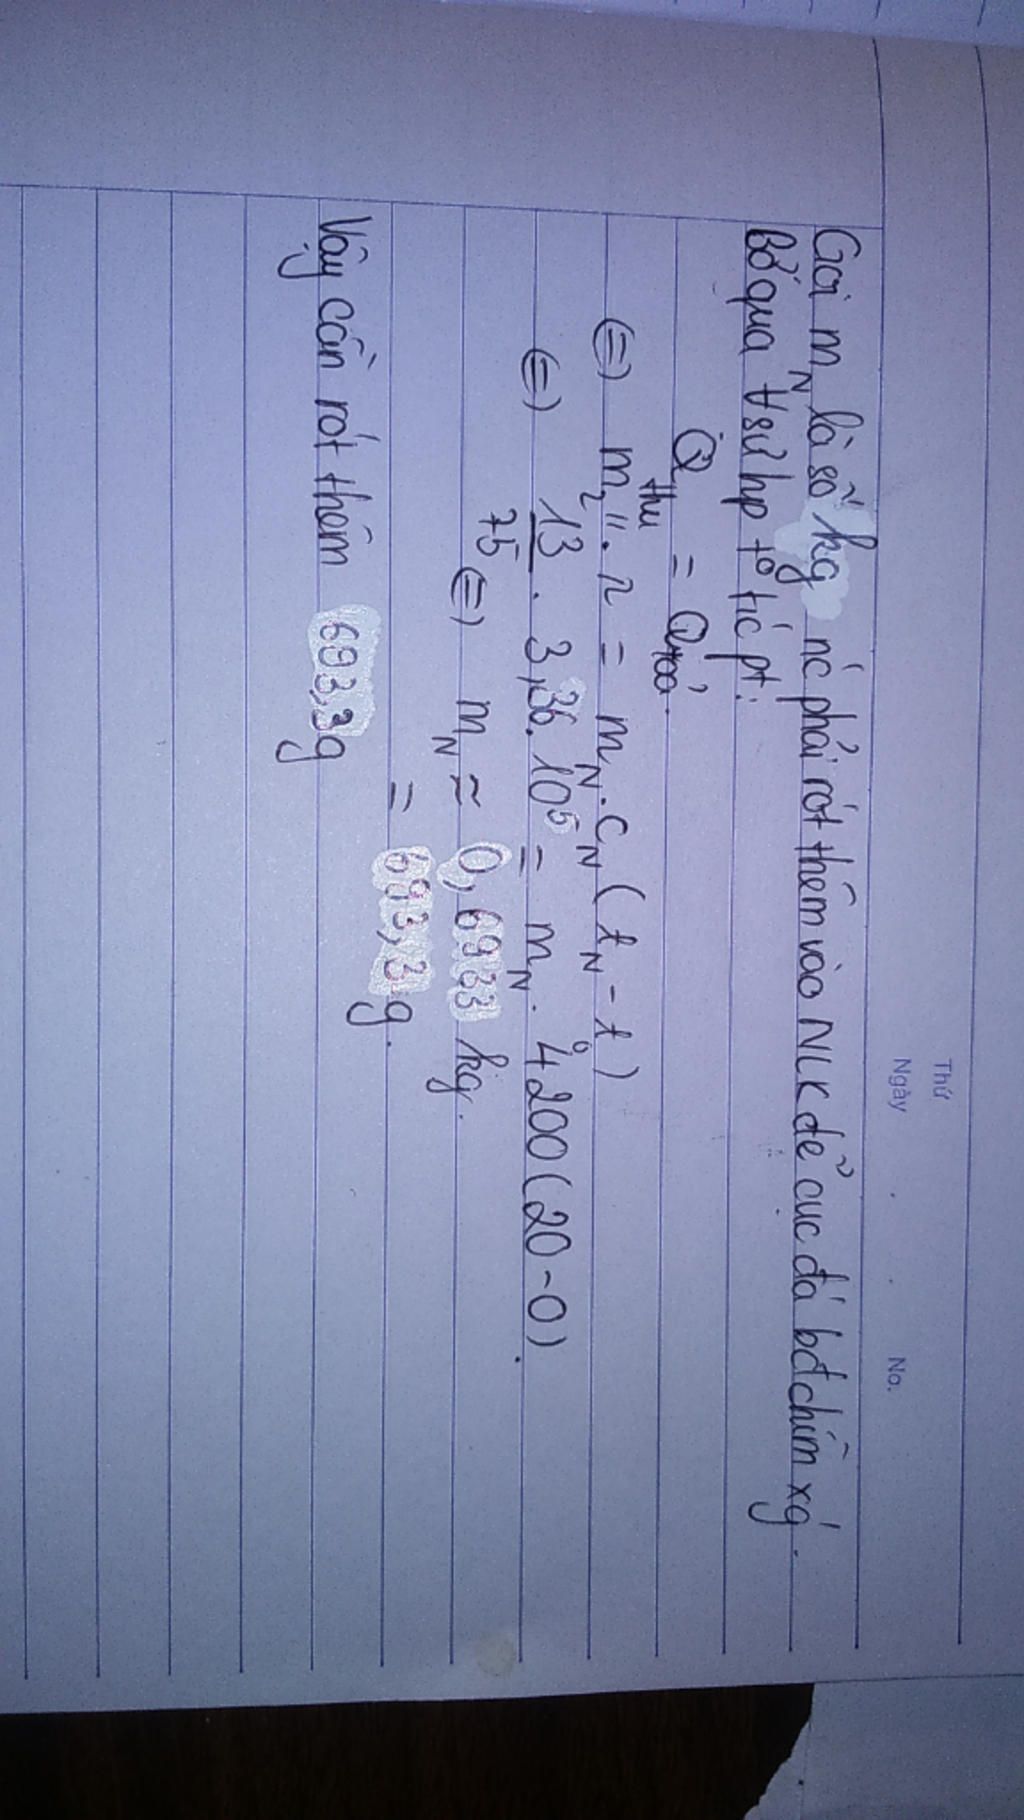 Thứ
Ngày . . No.
Gọi m_N là số kg nc phải rót thêm vào NLK để cục đá bđ chìm xg.
Bỏ qua ∀ sự hp tº tíc pt:
Q thu = Q toả.
(=) m₂''. λ = m_N . c_N (t_N - t)
(=) 13/75 . 3,36.10⁵ = m_N . 4200 (20 - 0).
(=) m_N ≈ 0,6933 kg.
= 693,3 g.
Vậy cần rót thêm 693,3g